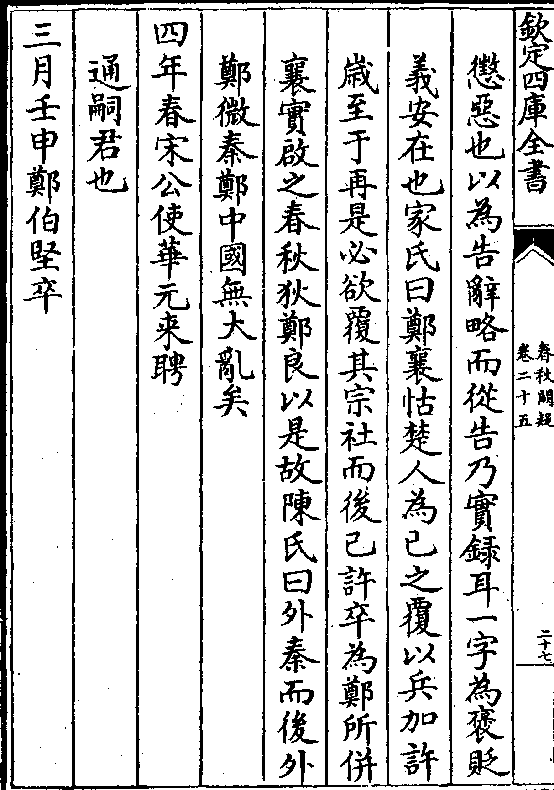 欽定四庫全書
春秋闕疑
卷二十五
二十七
懲惡也以為告辭略而從告乃實録耳一字為褒貶
義安在也家氏曰鄭襄怙楚人為己之覆以兵加許
歲至于再是必欲覆其宗社而後已許卒為鄭所併
襄實啟之春秋狄鄭良以是故陳氏曰外秦而後外
鄭微秦鄭中國無大亂矣
四年春宋公使華元来聘
通嗣君也
三月壬申鄭伯堅卒